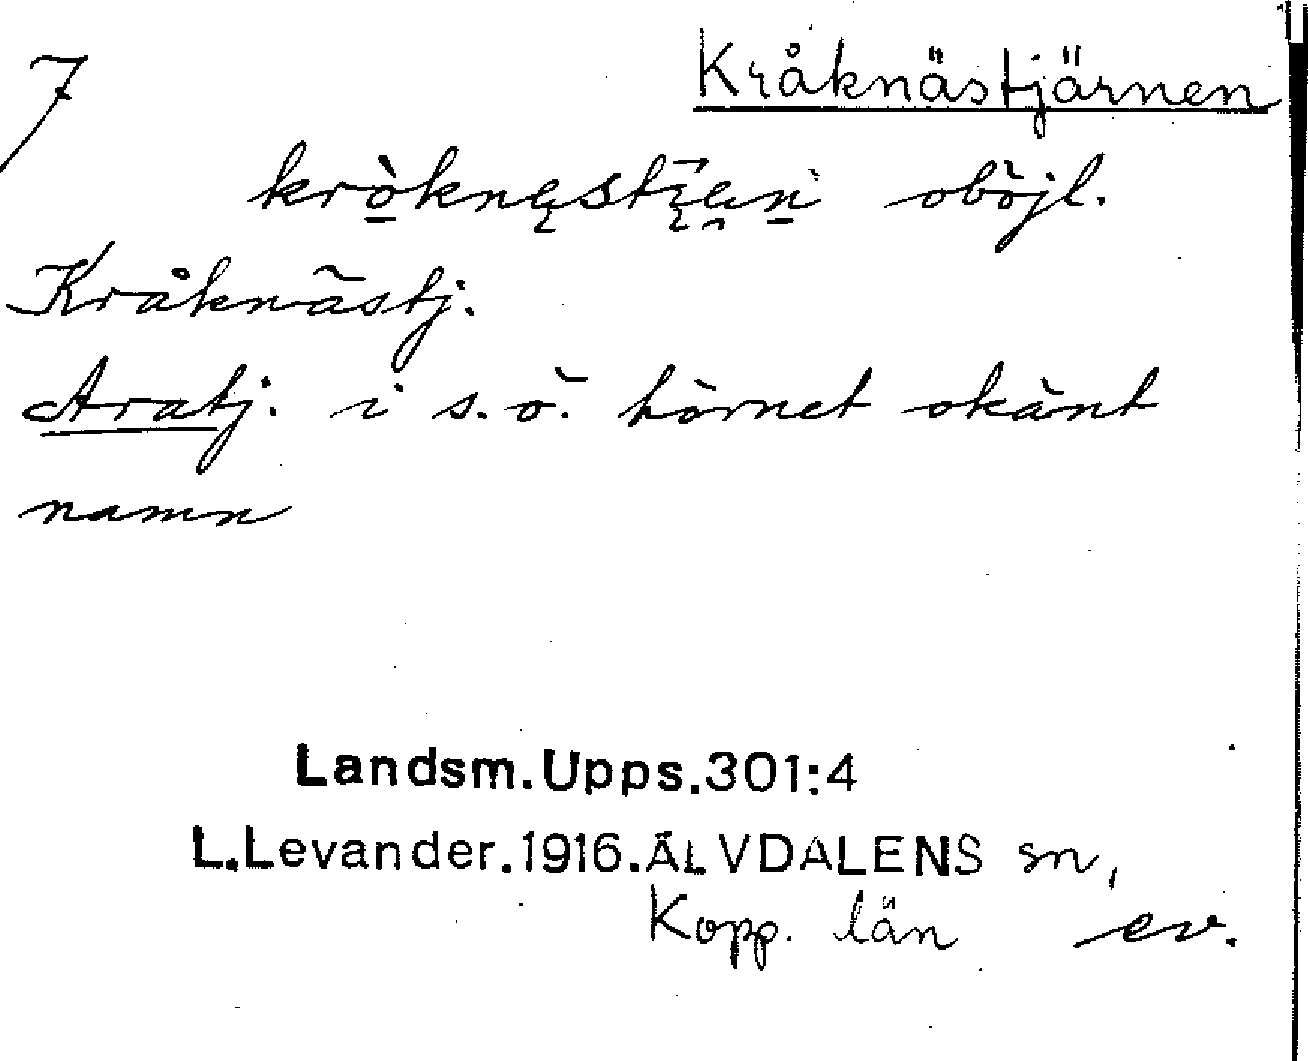 7 Kråknästjärnen
kròknęstįęṇ oböjl.
Kråknästj.
Aratj. i s.ö. hörnet okänt
namn
Landsm.Upps.301:4
L.Levander.1916.ÄLVDALENS sn,
Kopp. län ev.